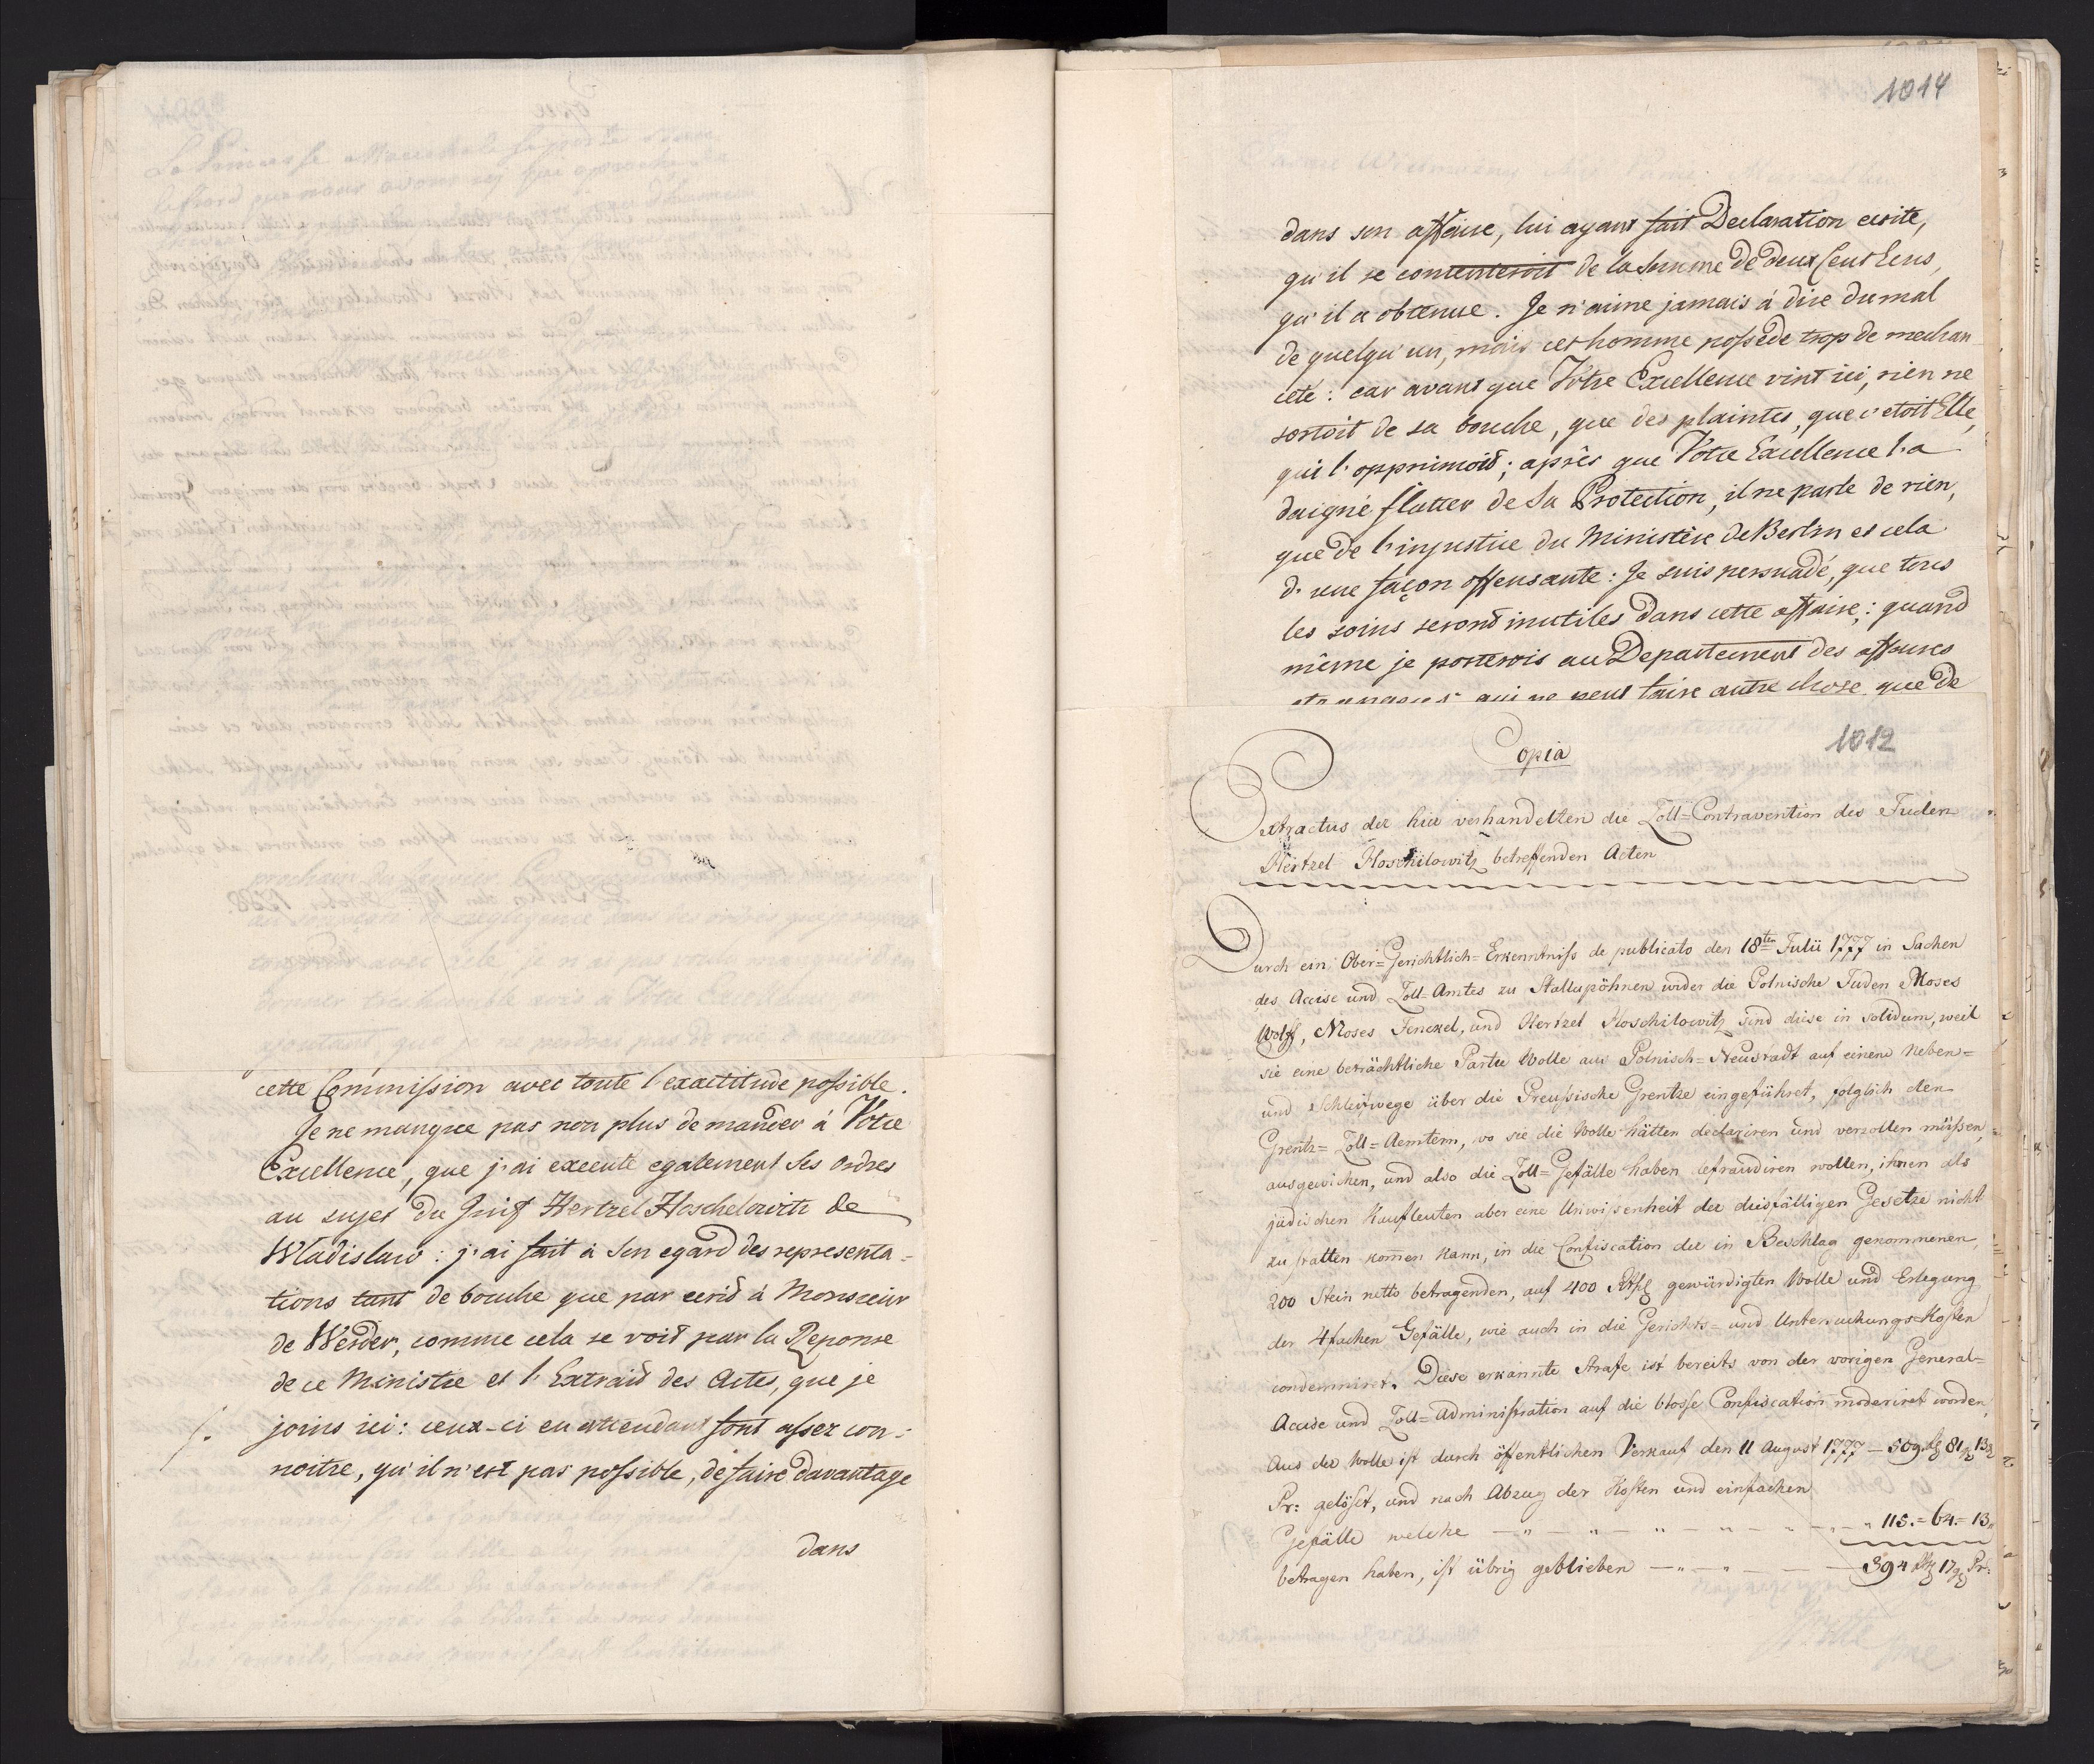 cette Commission avec toute l'exactitude possible.
Je ne manque pas non plus de mander à Votre
Excellence, que j'ai execute egalement Ses Ordres
au sujet du Juif Hertzel Hoschelowitz de
Wladislaw: j'ai fait à Son egard des representa-
tions tant de bouche que par ecrit à Monsieur
de Werder, comme cela se voit par la Reponse
de ce Ministre et l'Extrait des Actes, que je
/. joins ici: ceux-ci en attendant font assez con-
noitre, qu'il n'est pas possible, de faire davantage
dans
1014
dans son affaire, lui ayant fait Declaration ecrite,
qu'il se contenteroit de la Summe de deux Cent Ecus,
qu'il a obtenue. Je n'aime jamais à dire du mal
de quelqu'un, mais cet homme possede trop de mechan-
ceté: car avant que Votre Excellence vint ici, rien ne
sortoit de sa bouche, que des plaintes, que c'etoit Elle,
qui l'opprimoit; après que Votre Excellence l'a
daigné flatter de Sa Protection, il ne parle de rien,
que de l'injustice du Ministère de Berlin et cela
d'une façon offensante: Je suis persuadé, que tous
les soins seront inutiles dans cette affaire; quand
même je porterois au Departement des affaires
etrangeres qui ne peut faire autre chose que de
1012
Copia
Extractus der hier verhandelten die Zoll=Contravention des Juden
Hertzel Hoschilowitz betreffenden Acten
Durch ein Ober=Gerichtlich=Erkenntniss de publicato den 18ten Julii 1777 in Sachen
des Accise und Zoll-Amtes zu Stallupöhnen wider die Polnische Juden Moses
Wolff, Moses Jenckel, und Hertzel Hoschilowitz sind diese in solidum, weil
sie eine beträchtliche Partie Wolle aus Polnisch=Neustadt auf einem Neben=
und Schleifwege über die Preussische Grentze eingeführet, folglich den
Grentz=Zoll=Aemtern, wo sie die Wolle hätten declariren und verzollen müssen,
ausgewichen, und also die Zoll=Gefälle haben defraudiren wollen, ihnen als
jüdischen Kaufleuten aber eine Unwissenheit der diesfälligen Gesetze nicht
zu statten komen kann, in die Confiscation der in Beschlag genommenen,
200 Stein netto betragenden, auf 400 Rthl gewürdigten Wolle und Erlegung
der 4fachen Gefälle, wie auch in die Gerichts= und Untersuchungs=Kosten
condemniret. Diese erkannte Strafe ist bereits von der vorigen General=
Accise und Zoll=Administration auf die blosse Confiscation moderiret worden,
Aus der Wolle ist durch öffentlichen Verkauf den 11 August 1777 — 509 81 13
Pr: gelöset, und nach Abzug der Kosten und einfachen
Gefälle welche — " — " — " — " — 115.= 64.= 13
betragen haben, ist übrig geblieben — " — " — 394 17 Pr: